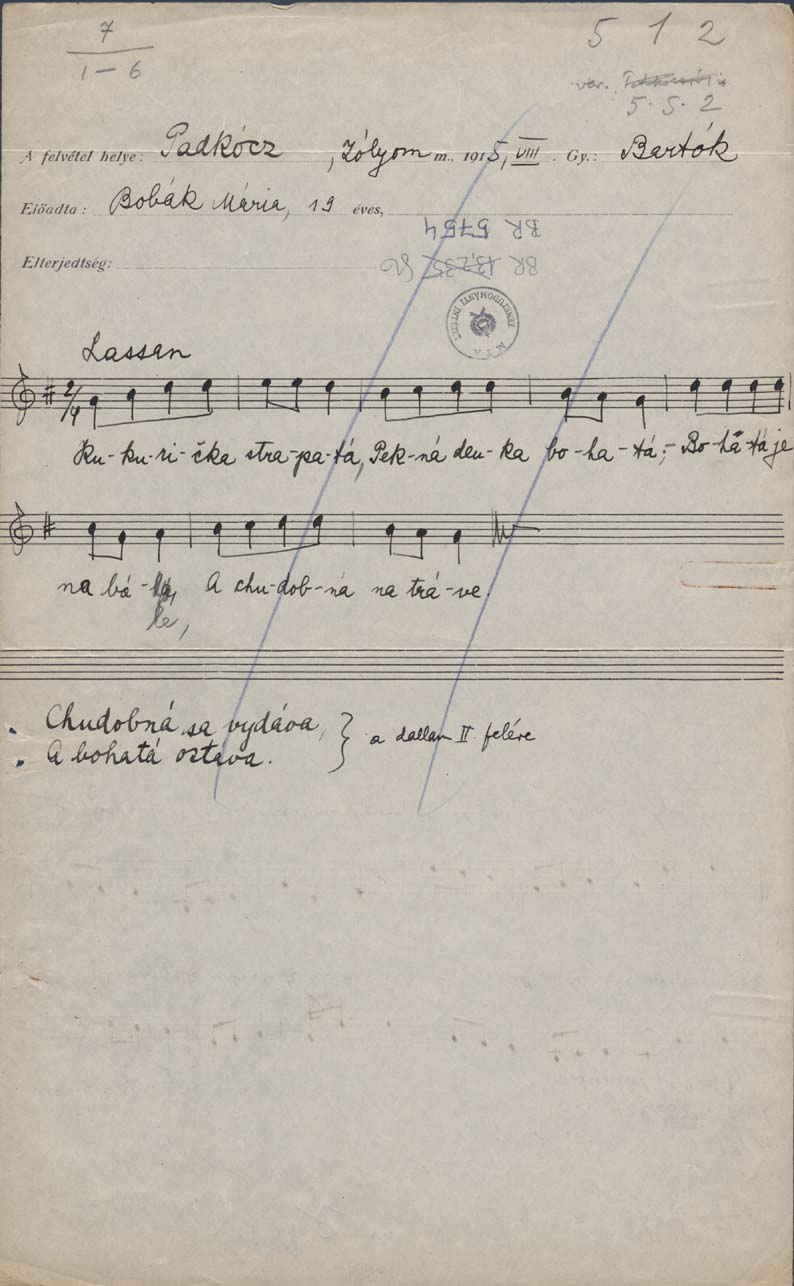 7
1-6
5 1 2
var.
5.5.2
A felvétel helye: Padkócz, Zólyom m., 1915, VIII. Gy.: Bartók
Előadta: Bobák Mária, 19 éves,
BR 5754
Elterjedtség:
BR 13,235
MTA ZENETUDOMÁNYI INTÉZET
Lassan
2/4
Ku-ku-ri-čka stra-pa-tá, Pek-ná deu-ka bo-ha-tá;- Bo-ha-tá je
na bá-
le,
A chu-dob-ná na trá-ve.
Chudobná sa vydáva,
A bohatá ostáva.
} a dallam II felére